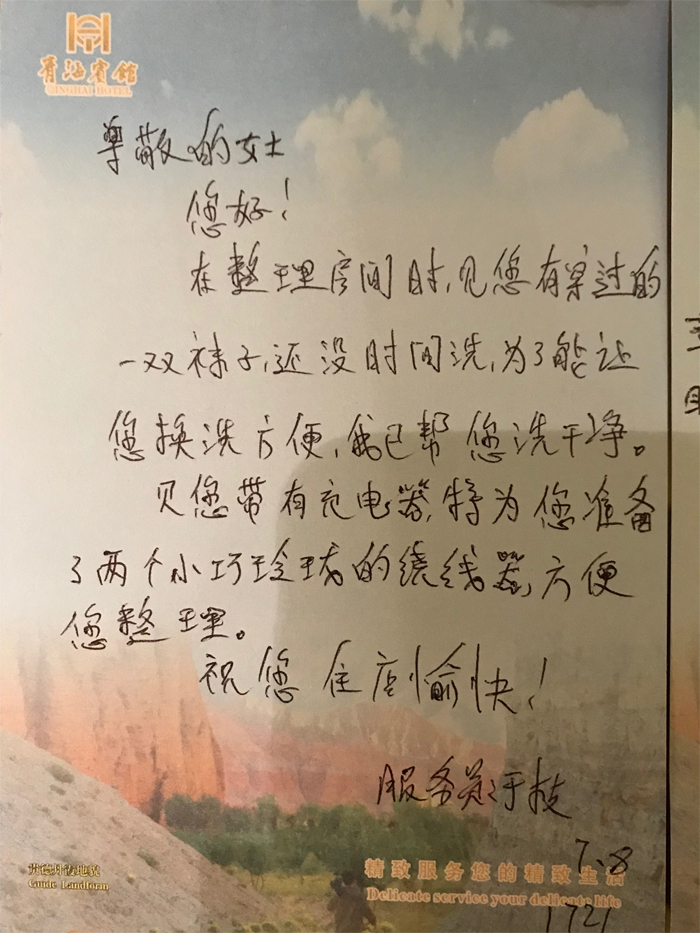 青海宾馆
QINGHAI HOTEL
尊敬的女士
您好！
在整理房间时,见您有穿过的
一双袜子,还没时间洗,为了能让
您换洗方便,我已帮您洗干净。
见您带有充电器,特为您准备
了两个小巧玲珑的绕线器,方便
您整理。
祝您住店愉快！
服务员:于
7.8
1721
贵德丹霞地貌
Guide Landform
精致服务您的精致生活
Delicate service your delicate life